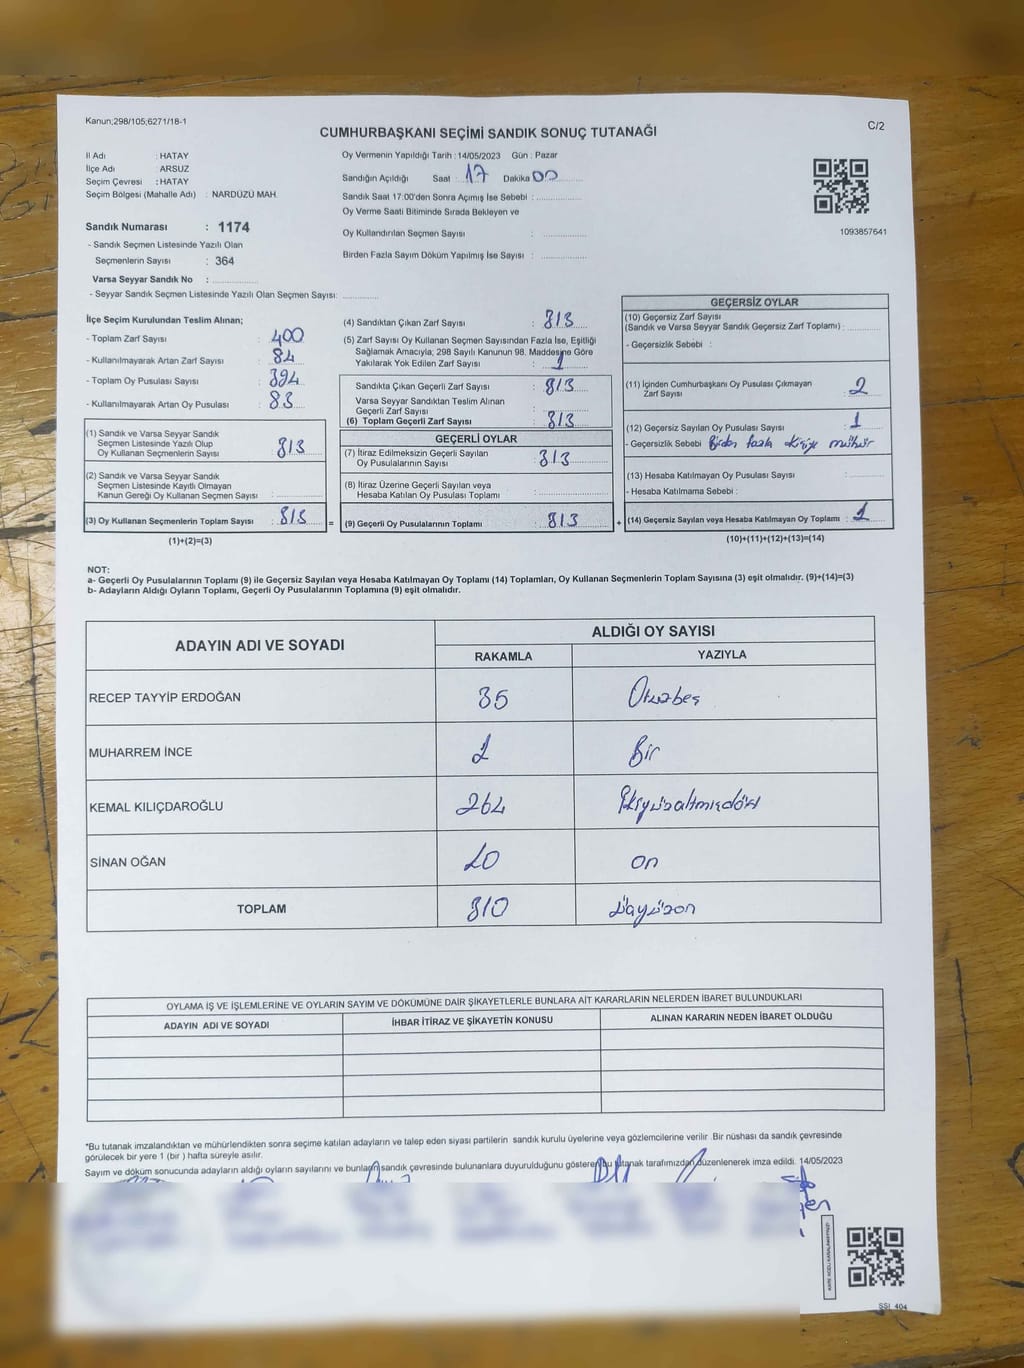 Kanun;298/105;6271/18-1
CUMHURBAŞKANI SEÇİMİ SANDIK SONUÇ TUTANAĞI
C/2
İl Adı : HATAY
İlçe Adı : ARSUZ
Seçim Çevresi : HATAY
Seçim Bölgesi (Mahalle Adı) : NARDÜZÜ MAH.
Sandık Numarası : 1174
- Sandık Seçmen Listesinde Yazılı Olan
Seçmenlerin Sayısı : 364
Varsa Seyyar Sandık No :
- Seyyar Sandık Seçmen Listesinde Yazılı Olan Seçmen Sayısı:
Oy Vermenin Yapıldığı Tarih : 14/05/2023 Gün : Pazar
Sandığın Açıldığı Saat : 17 Dakika 00
Sandık Saat 17:00'den Sonra Açımış İse Sebebi :
Oy Verme Saati Bitiminde Sırada Bekleyen ve
Oy Kullandırılan Seçmen Sayısı :
Birden Fazla Sayım Döküm Yapılmış İse Sayısı :
1093857641
İlçe Seçim Kurulundan Teslim Alınan;
- Toplam Zarf Sayısı : 400
- Kullanılmayarak Artan Zarf Sayısı : 84
- Toplam Oy Pusulası Sayısı : 394
- Kullanılmayarak Artan Oy Pusulası : 83
(1) Sandık ve Varsa Seyyar Sandık
Seçmen Listesinde Yazılı Olup
Oy Kullanan Seçmenlerin Sayısı : 313
(2) Sandık ve Varsa Seyyar Sandık
Seçmen Listesinde Kayıtlı Olmayan
Kanun Gereği Oy Kullanan Seçmen Sayısı :
(3) Oy Kullanan Seçmenlerin Toplam Sayısı : 313 =
(1)+(2)=(3)
(4) Sandıktan Çıkan Zarf Sayısı : 313
(5) Zarf Sayısı Oy Kullanan Seçmen Sayısından Fazla İse, Eşitliği
Sağlamak Amacıyla; 298 Sayılı Kanunun 98. Maddesine Göre
Yakılarak Yok Edilen Zarf Sayısı : 1
Sandıkta Çıkan Geçerli Zarf Sayısı : 313
Varsa Seyyar Sandıktan Teslim Alınan
Geçerli Zarf Sayısı :
(6) Toplam Geçerli Zarf Sayısı : 313
GEÇERLİ OYLAR
(7) İtiraz Edilmeksizin Geçerli Sayılan
Oy Pusulalarının Sayısı : 313
(8) İtiraz Üzerine Geçerli Sayılan veya
Hesaba Katılan Oy Pusulası Toplamı :
(9) Geçerli Oy Pusulalarının Toplamı : 313 +
GEÇERSİZ OYLAR
(10) Geçersiz Zarf Sayısı
(Sandık ve Varsa Seyyar Sandık Geçersiz Zarf Toplamı) :
- Geçersizlik Sebebi :
(11) İçinden Cumhurbaşkanı Oy Pusulası Çıkmayan
Zarf Sayısı : 2
(12) Geçersiz Sayılan Oy Pusulası Sayısı : 1
- Geçersizlik Sebebi : Birden fazla kişiye mühür
(13) Hesaba Katılmayan Oy Pusulası Sayısı :
- Hesaba Katılmama Sebebi :
(14) Geçersiz Sayılan veya Hesaba Katılmayan Oy Toplamı : 1
(10)+(11)+(12)+(13)=(14)
NOT:
a- Geçerli Oy Pusulalarının Toplamı (9) ile Geçersiz Sayılan veya Hesaba Katılmayan Oy Toplamı (14) Toplamları, Oy Kullanan Seçmenlerin Toplam Sayısına (3) eşit olmalıdır. (9)+(14)=(3)
b- Adayların Aldığı Oyların Toplamı, Geçerli Oy Pusulalarının Toplamına (9) eşit olmalıdır.
ADAYIN ADI VE SOYADI ALDIĞI OY SAYISI
RAKAMLA YAZIYLA
RECEP TAYYİP ERDOĞAN 35 Otuzbeş
MUHARREM İNCE 1 Bir
KEMAL KILIÇDAROĞLU 264 İkiyüzaltmışdört
SİNAN OĞAN 10 on
TOPLAM 310 üçyüzon
OYLAMA İŞ VE İŞLEMLERİNE VE OYLARIN SAYIM VE DÖKÜMÜNE DAİR ŞİKAYETLERLE BUNLARA AİT KARARLARIN NELERDEN İBARET BULUNDUKLARI
ADAYIN ADI VE SOYADI İHBAR İTİRAZ VE ŞİKAYETİN KONUSU ALINAN KARARIN NEDEN İBARET OLDUĞU
*Bu tutanak imzalandıktan ve mühürlendikten sonra seçime katılan adayların ve talep eden siyasi partilerin sandık kurulu üyelerine veya gözlemcilerine verilir. Bir nüshası da sandık çevresinde
görülecek bir yere 1 (bir ) hafta süreyle asılır.
Sayım ve döküm sonucunda adayların aldığı oyların sayılarını ve bunların sandık çevresinde bulunanlara duyurulduğunu gösteren bu tutanak tarafımızdan düzenlenerek imza edildi. 14/05/2023
SSI_404